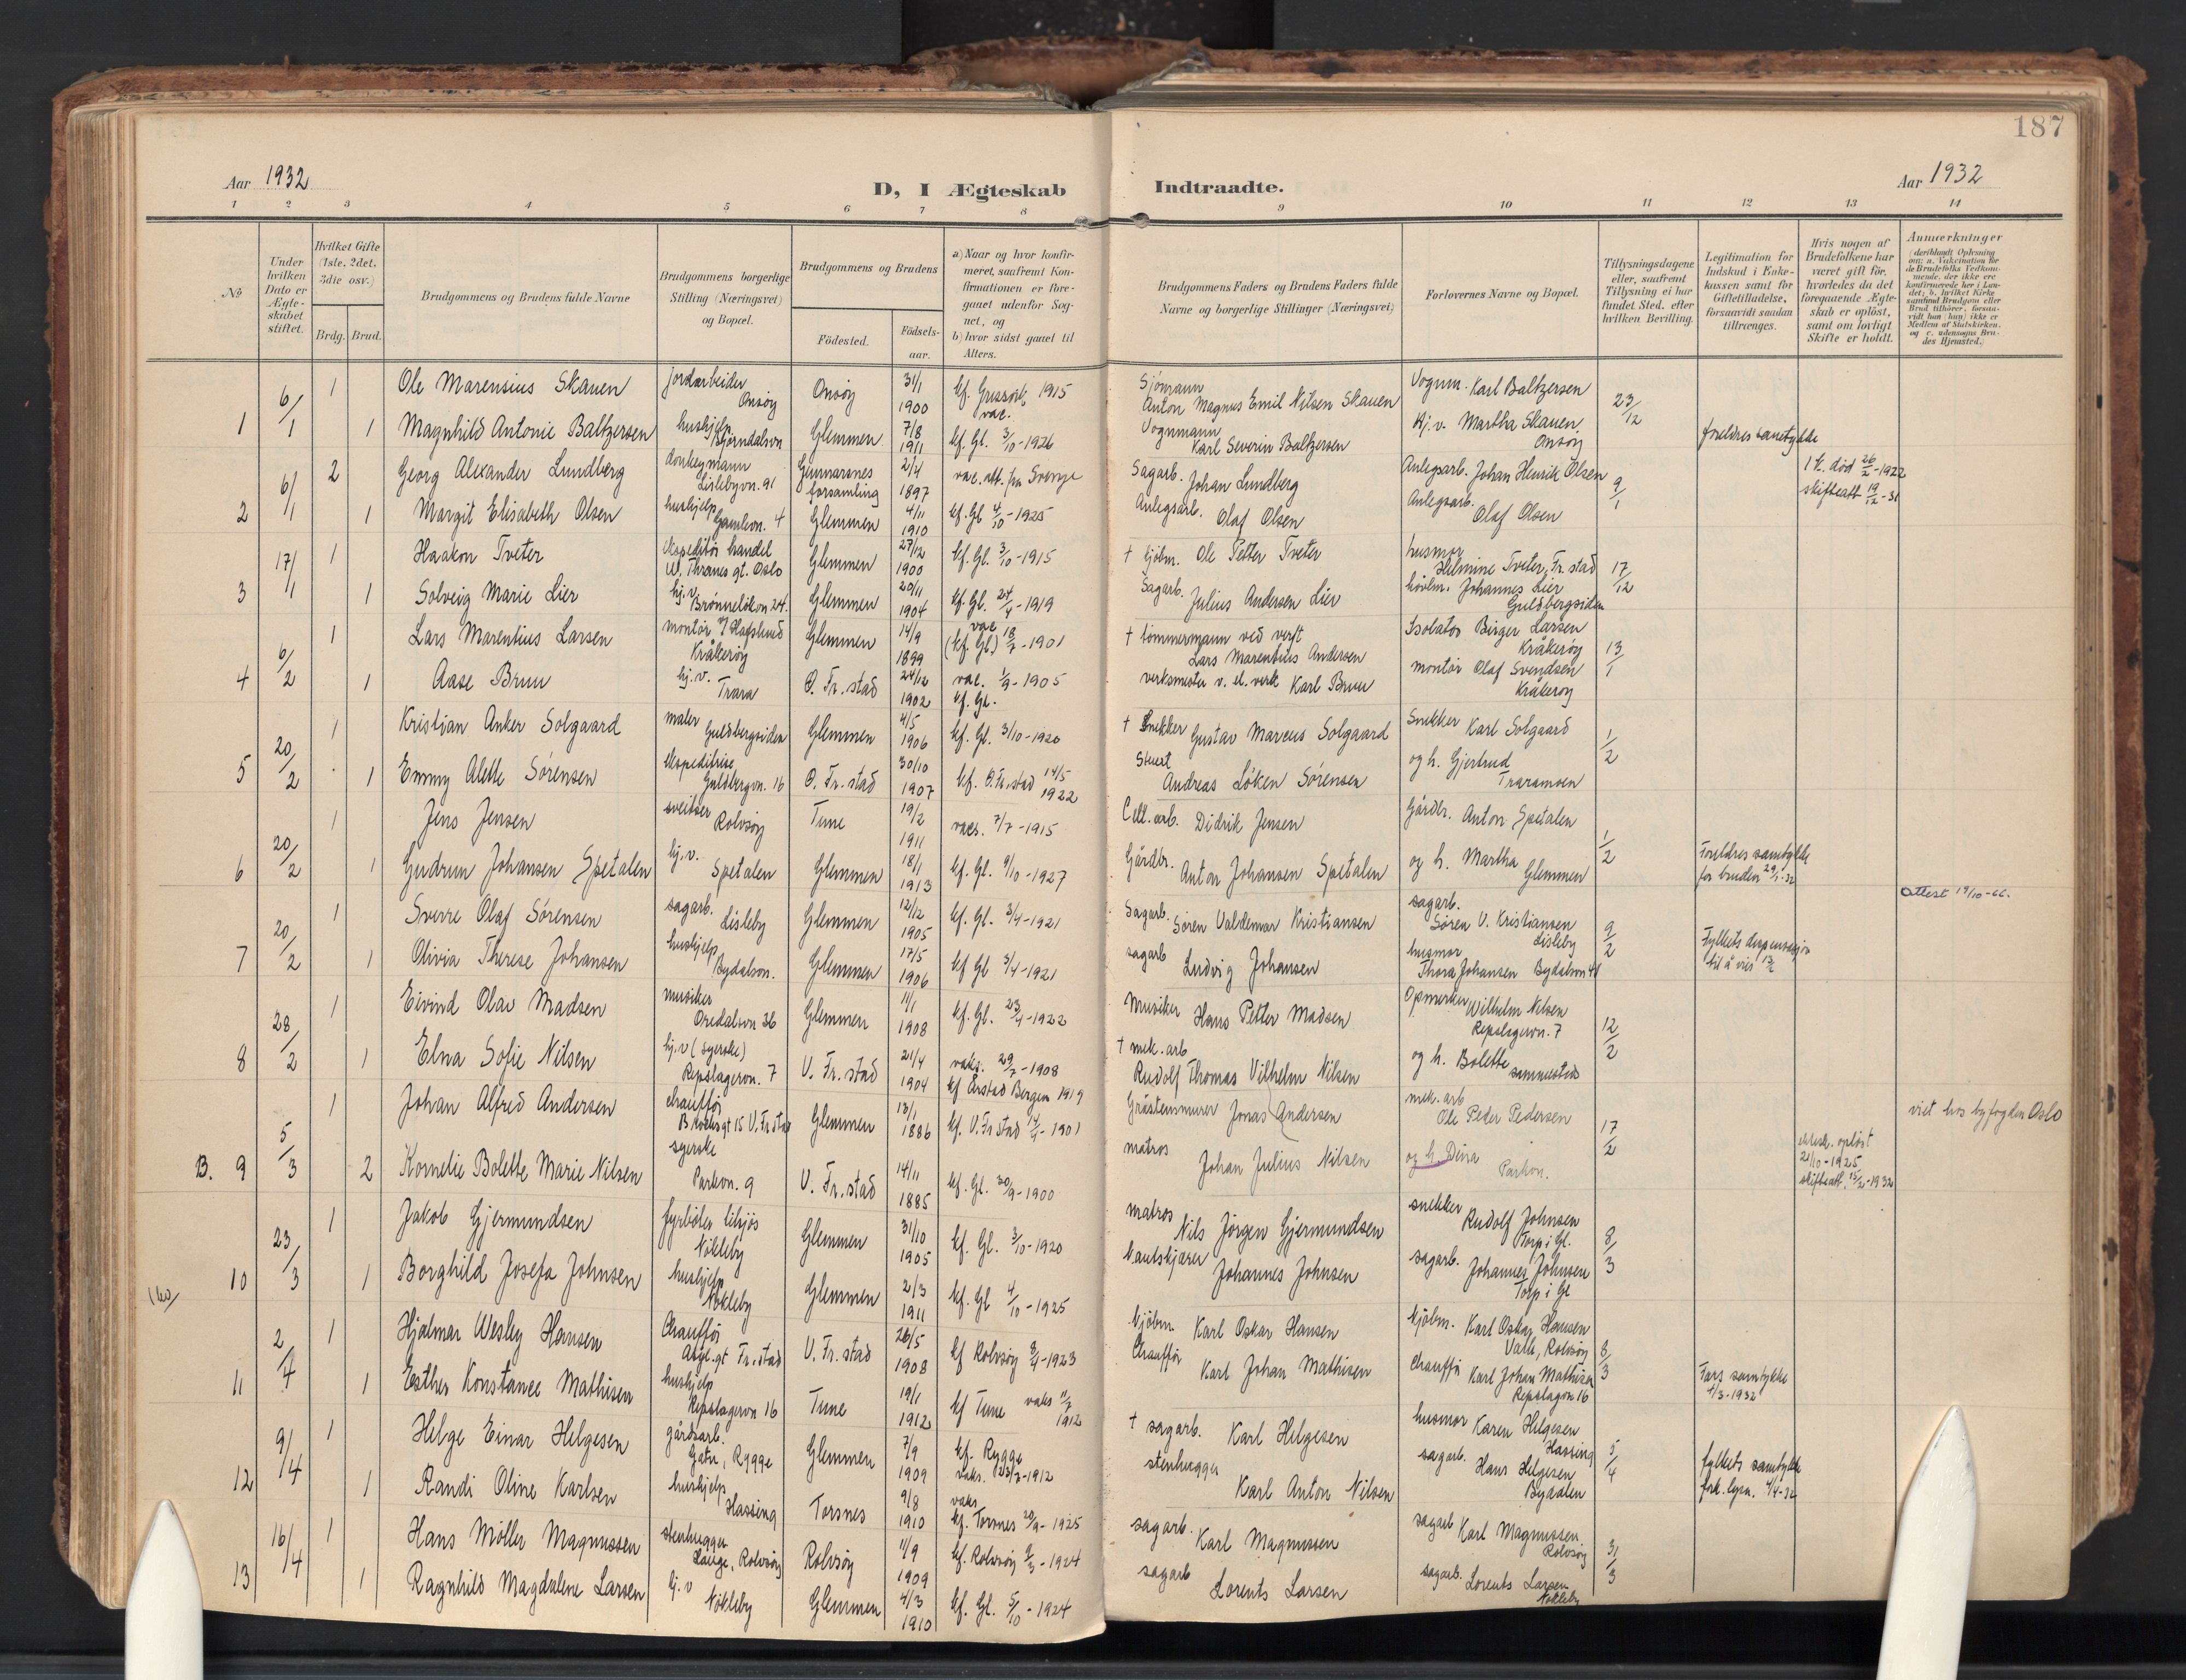 187
Aar 1932
D, I Ægteskab Indtraadte.
Aar 1932
1 2 3 4 5 6 7 8 9 10 11 12 13 14
№
Under hvilken Dato er Ægteskabet stiftet.
Hvilket Gifte (1ste, 2det, 3die osv.)
Brdg. Brud.
Brudgommens og Brudens fulde Navne
Brudgommens borgerlige Stilling (Næringsvei) og Bopæl.
Brudgommens og Brudens
Födested.
Födsels-aar.
a) Naar og hvor konfirmeret, saafremt Konfirmationen er foregaaet udenfor Sognet, og
b) hvor sidst gaaet til Alters.
Brudgommens Faders og Brudens Faders fulde Navne og borgerlige Stillinger (Næringsvei)
Forlovernes Navne og Bopæl.
Tillysningsdagene eller, saafremt Tillysning ei har fundet Sted, efter hvilken Bevilling.
Legitimation for Indskud i Enkekassen samt for Giftetilladelse, forsaavidt saadan tiltrænges.
Hvis nogen af Brudefolkene har været gift för, hvorledes da det foregaaende Ægteskab er oplöst, samt om lovligt Skifte er holdt.
Anmærkninger
1 6/1 1 Ole Marensius Skauen jordarbeider Onsøy Onsøy 31/1 1900 1915 vac. Sjømann Anton Magnus Emil Nilsen Skauen Vognm. Karl Baltzersen 23/12
1 Magnhild Antonie Baltzersen hushjelp Bjørndalsvn Glemmen 7/8 1911 kf. Gl. 3/10-1926 Vognmann Karl Severin Baltzersen Hj. v. Martha Skauen, Onsøy foreldres samtykke
2 6/1 2 Georg Alexander Lundberg donkeymann Lislebyvn. 91 Gunnarsnes forsamling 2/4 1897 vac. att. fra Sverige Sagarb. Johan Lundberg Anlegsarb. Johan Henrik Olsen 9/1 1 k. død 26/2-1922 skifteatt 19/12-31
1 Margit Elisabeth Olsen hushjelp Gamlevn. 4 Glemmen 4/11 1910 kf. Gl 4/10-1925 Anlegsarb. Olaf Olsen Anlegsarb. Olaf Olsen
3 17/1 1 Haakon Tveter ekspeditør handel W. Thranes gt. Oslo Glemmen 27/12 1900 kf. Gl. 3/10-1915 † kjøbm. Ole Petter Tveter husmor Helmine Tveter, Fr. stad 17/12
1 Solveig Marie Lier hj. v. Brønneløkvn 24. Glemmen 20/11 1904 kf. Gl. 24/4-1919 Sagarb. Julius Andersen Lier høvlm. Johannes Lier Guldbergsiden
4 6/2 1 Lars Marentius Larsen montør v/ Hafslund Kråkerøy Glemmen 14/9 1899 vac (kf. Gl.) 18/7-1901 † tømmermann ved verft Lars Marentius Andersen Isolatør Birger Larsen Kråkerøy 13/1
1 Aase Bruu hj. v. Trara Ø. Fr. stad 24/12 1902 vac. 1/9-1905 kf. Gl. verksmester v. el. verk Karl Bruu montør Olaf Svendsen Kråkerøy
5 20/2 1 Kristian Anker Solgaard maler Guldbergsiden Glemmen 4/5 1906 kf. Gl. 3/10-1920 † Snekker Gustav Marcus Solgaard Snekker Karl Solgaard 1/2
1 Emmy Alette Sørensen ekspeditrise Guldbergvn. 16 Ø. Fr. stad 30/10 1907 kf. Ø. Fr. stad 14/5 1922 Stuert Andreas Løken Sørensen og h. Gjertrud Traramoen
6 20/2 1 Jens Jensen sveitser Rolvsøy Tune 19/2 1911 vacs. 7/7-1915 Cell. arb. Didrik Jensen Gårdbr. Anton Spetalen 1/2
1 Gudrun Johansen Spetalen hj. v. Spetalen Glemmen 18/1 1913 kf. Gl. 9/10-1927 Gårdbr. Anton Johansen Spetalen og h. Martha Glemmen Foreldres samtykke for bruden 29/1-32
7 20/2 1 Sverre Olaf Sørensen sagarb. Lisleby Glemmen 12/12 1905 kf. Gl. 3/4-1921 Sagarb. Søren Valdemar Kristiansen sagarb. Søren V. Kristiansen Lisleby 9/2 Attest 19/10-66.
1 Olivia Therese Johansen hushjelp Bydalsvn. Glemmen 17/5 1906 kf Gl 3/4-1921 sagarb Ludvig Johansen husmor Thora Johansen Bydalsvn 41 Fylkets dispensasjon til å vies 13/2
8 28/2 1 Eivind Olav Madsen musiker Oredalsvn 36 Glemmen 11/1 1908 kf. Gl. 23/4-1922 Musiker Hans Petter Madsen Opmerker Wilhelm Nilsen Repslagervn. 7 12/2
1 Elna Sofie Nilsen hj. v (syerske) Repslagervn. 7 V. Fr. stad 21/4 1904 vaks. 29/7-1908 kf Årstad Bergen 1919 † mek. arb Rudolf Thomas Vilhelm Nilsen og h. Bolette sammesteds
B. 9 5/3 1 Johan Alfred Andersen chauffør 15 V. Fr stad Glemmen 13/1 1886 kf. V. Fr stad 14/4-1901 Gråstenmurer Jonas Andersen mek. arb Ole Peder Pedersen 17/2 viet hos byfogden Oslo
2 Kornelie Bolette Marie Nilsen syerske Parkvn. 9 V. Fr. stad 14/11 1885 kf. Gl. 30/9-1900 matros Johan Julius Nilsen og h. Dina Parkvn. ektesk. opløst 21/10-1925 skifteatt. 15/2-1932
10 23/3 1 Jakob Gjermundsen fyrbøter tilsjøs Nøkleby Glemmen 31/10 1905 kf. Gl. 3/10-1920 matros Nils Jørgen Gjermundsen snekker Rudolf Johnsen Torp i Gl. 8/3
1 Borghild Josefa Johnsen hushjelp Nøkleby Glemmen 2/3 1911 kf. Gl 4/10-1925 Johannes Johnsen sagarb. Johannes Johnsen Torp i Gl
11 2/4 1 Hjalmar Wesley Hansen Chauffør Asyl. gt Fr. stad V. Fr. stad 26/5 1908 kf Rolvsøy 8/4-1923 Kjøbm. Karl Oskar Hansen Kjøbm. Karl Oskar Hansen Valle, Rolvsøy 8/3
1 Esther Konstance Mathisen hushjelp Repslagervn 16 Tune 19/1 1912 kf Tune vaks 11/7 1912 Chauffør Karl Johan Mathisen Chauffør Karl Johan Mathisen Repslagvn 16 Fars samtykke 4/3-1932
12 9/4 1 Helge Einar Helgesen gårdsarb. Gatu, Rygge Glemmen 7/9 1909 kf. Rygge vaks. 23/7-1912 † sagarb. Karl Helgesen husmor Karen Helgesen Hassing 5/4
1 Randi Oline Karlsen hushjelp Hassing Torsnes 9/8 1910 vaks kf. Torsnes 20/9-1925 stenhugger Karl Anton Nilsen sagarb. Hans Helgesen Bydalen fylkets samtykke fork. lysn. 4/4-32
13 16/4 1 Hans Møller Magnussen stenhugger Hauge, Rolvsøy Rolvsøy 11/9 1909 kf. Rolvsøy 9/3-1924 sagarb. Karl Magnussen sagarb Karl Magnussen Rolvsøy 31/3
1 Ragnhild Magdalene Larsen hj. v Nøkleby Glemmen 4/3 1910 kf. Gl. 5/10-1924 sagarb Lorents Larsen sagarb. Lorents Larsen Nøkleby